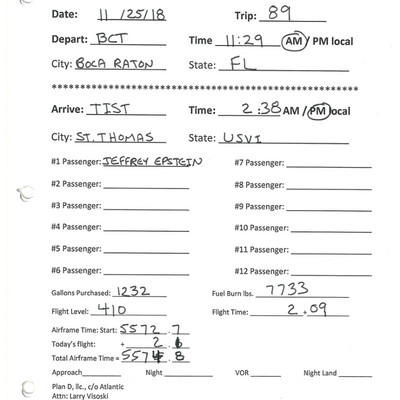 Date: 11/25/18 Trip: 89
Depart: BCT Time 11:29 AM / PM local
City: BOCA RATON State: FL
********************************************************
Arrive: TIST Time: 2:38 AM / PM local
City: ST. THOMAS State: USVI
#1 Passenger: JEFFREY EPSTEIN #7 Passenger:
#2 Passenger: #8 Passenger:
#3 Passenger: #9 Passenger:
#4 Passenger: #10 Passenger:
#5 Passenger: #11 Passenger:
#6 Passenger: #12 Passenger:
Gallons Purchased: 1232 Fuel Burn lbs. 7733
Flight Level: 410 Flight Time: 2+09
Airframe Time: Start: 5572.7
Today's flight: + 2.
Total Airframe Time = 5574.8
Approach Night VOR Night Land
Plan D, llc., c/o Atlantic
Attn: Larry Visoski